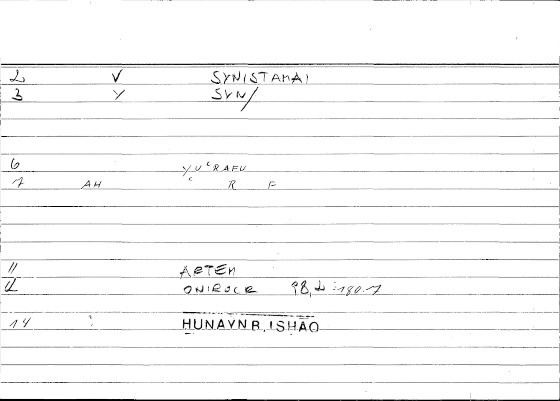 2 V SYNISTAMAI
3 Y SYN/
6
7 AH R F
11 ARTEM
12 ONIROCR 98,2:190.7
14 ? HUNAYNB.ISHAQ